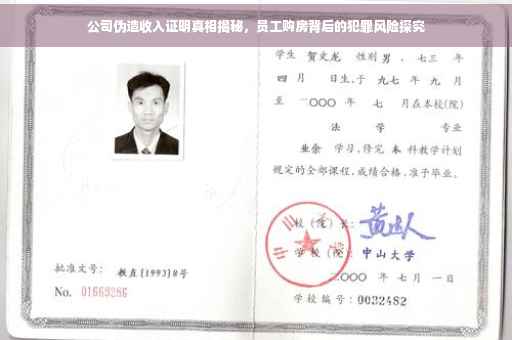 公司伪造收入证明真相揭秘，员工购房背后的犯罪风险探究
学生 贺文龙 性别 男 、七三 年
四 月 日生,于 九七 年 九 月
至 二〇〇〇 年 七 月在本校(院)
法 学 专业
业余 学习,修完 本 科教学计划
规定的全部课程,成绩合格,准予毕业。
校(院)长:
学校(院): 中山大学
二〇〇〇 年 七 月 一 日
学校编号: 0032482
批准文号: 教直[1993]8号
No. 01669286